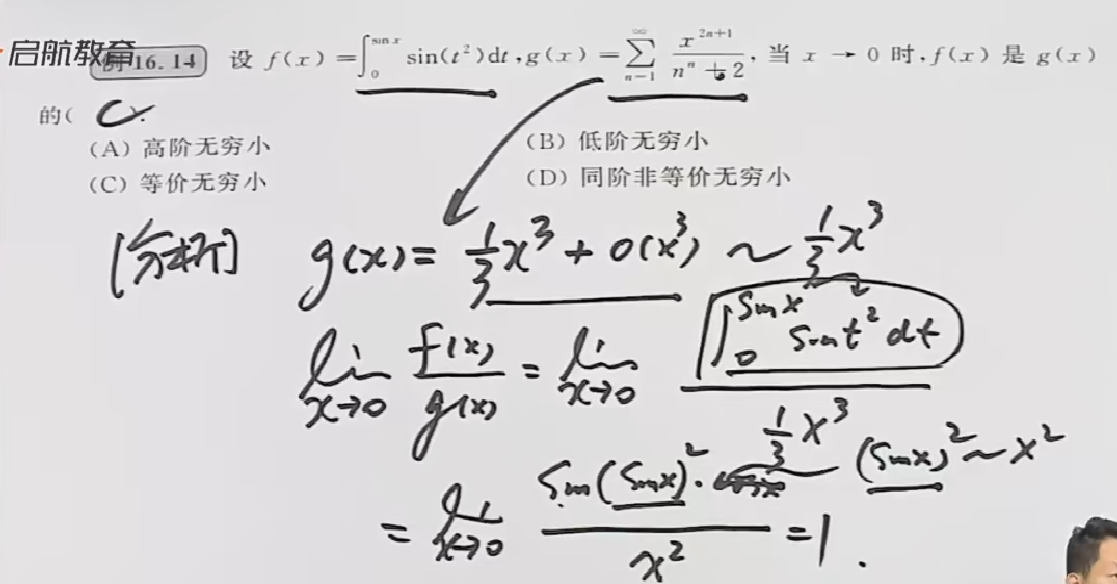 启航教育
例 16.14 设 f(x)=∫₀^{sin x} sin(t²)dt, g(x)=∑_{n=1}^{∞} x^{2n+1}/(nⁿ+2), 当 x → 0 时, f(x) 是 g(x)
的( C ).
(A) 高阶无穷小 (B) 低阶无穷小
(C) 等价无穷小 (D) 同阶非等价无穷小
[分析] g(x)= 1/3 x³ + o(x³) ~ 1/3 x³
lim_{x→0} f(x)/g(x) = lim_{x→0} ∫₀^{sin x} sin t² dt / (1/3 x³)
= lim_{x→0} sin(sin x)²· / x² = 1. (sin x)² ~ x²